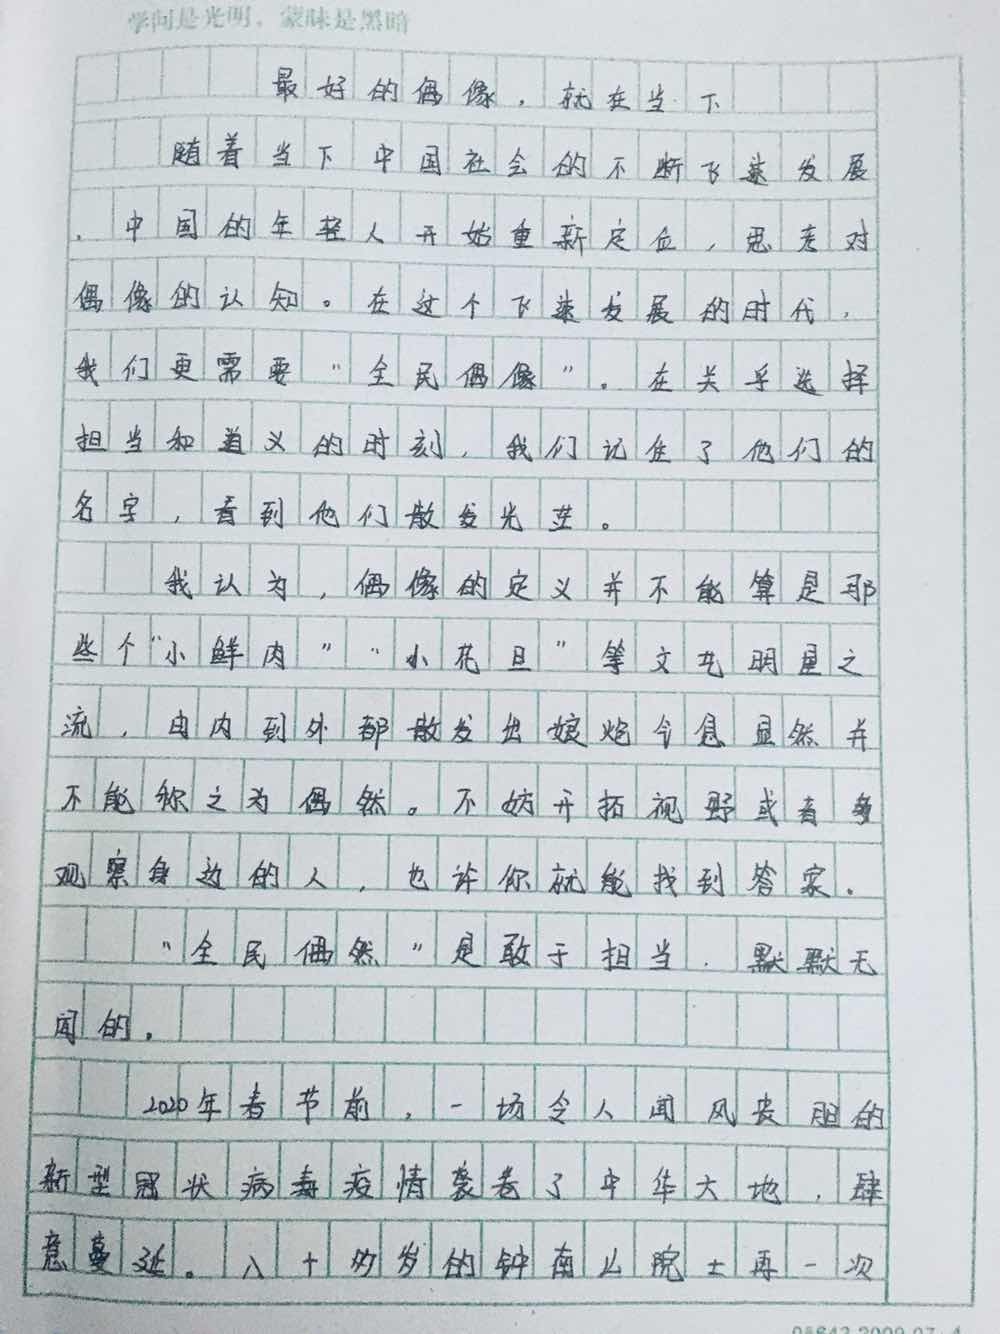 学问是光明，蒙昧是黑暗
最好的偶像，就在当下
随着当下中国社会的不断飞速发展
，中国的年轻人开始重新定位，思考对
偶像的认知。在这个飞速发展的时代，
我们更需要“全民偶像”。在关乎选择
担当和道义的时刻，我们记住了他们的
名字，看到他们散发光芒。
我认为，偶像的定义并不能算是那
些个“小鲜肉”“小花旦”等文艺明星之
流，由内到外都散发出娘炮气息显然并
不能称之为偶然。不妨开拓视野或者多
观察身边的人，也许你就能找到答案。
“全民偶然”是敢于担当，默默无
闻的。
2020年春节前，一场令人闻风丧胆的
新型冠状病毒疫情袭卷了中华大地，肆
意蔓延。八十多岁的钟南山院士再一次